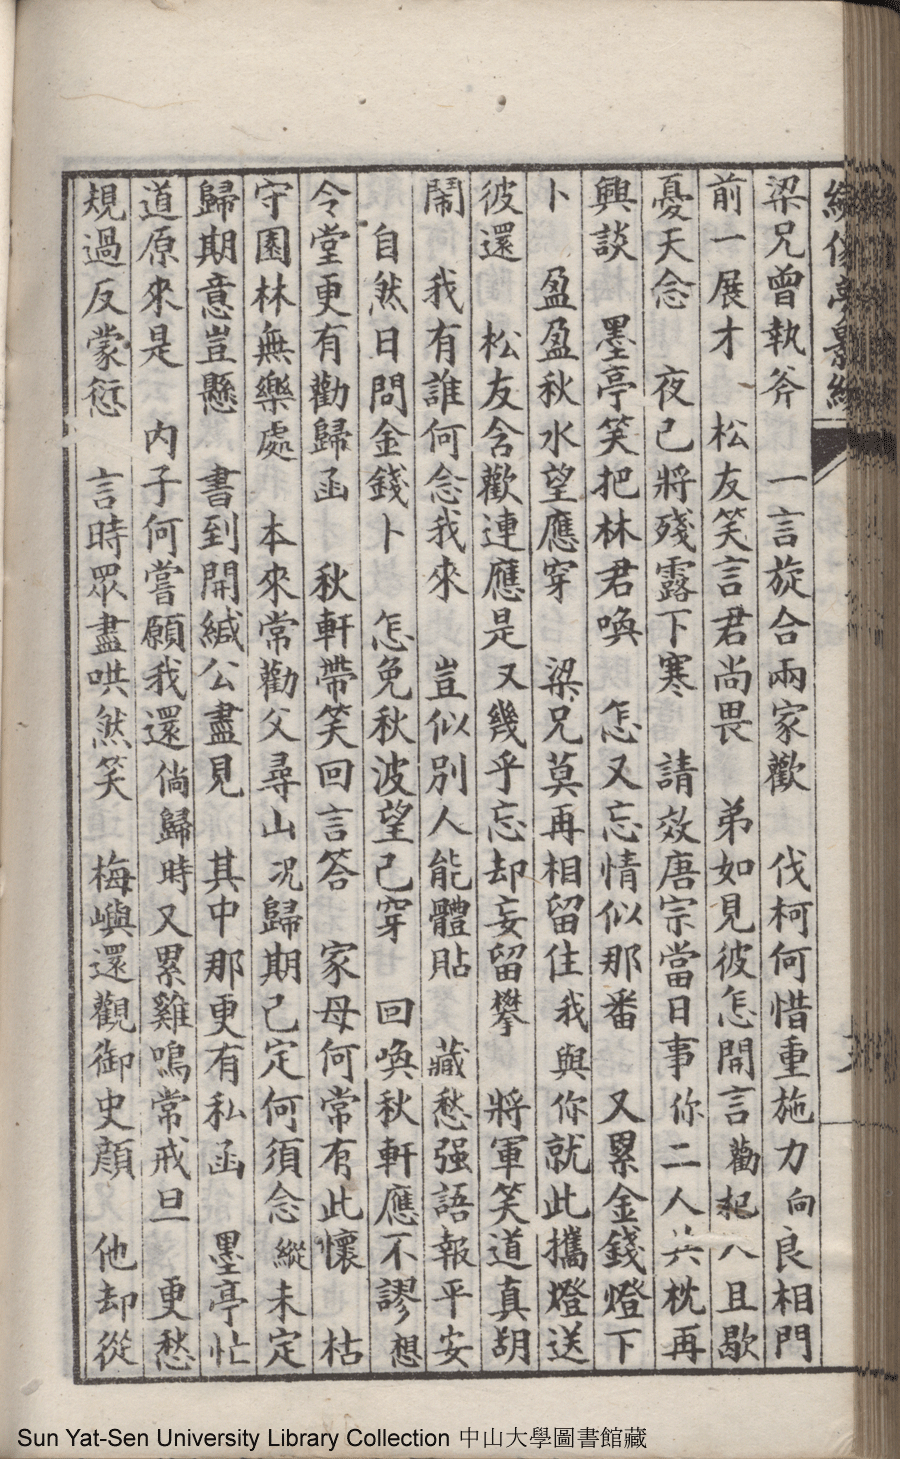 梁兄曾執斧　一言旋合兩家歡　伐柯何惜重施力向良相門
前一展才　松友笑言君尚畏　弟如見彼怎開言勸杞人且歇
憂天念　夜已將殘露下寒　請效唐宗當日事你二人共枕再
興談　墨亭笑把林君喚　怎又忘情似那番　又累金錢燈下
卜　盈盈秋水望應穿　梁兄莫再相留住我與你就此攜燈送
彼還　松友含歡連應是又幾乎忘却妄留攀　將軍笑道真胡
鬧　我有誰何念我來　豈似別人能體貼　藏愁强語報平安
自然日問金錢卜　怎免秋波望已穿　回喚秋軒應不謬想
令堂更有勸歸函　秋軒帶笑回言答　家母何常有此懷　枯
守園林無樂處　本來常勸父尋山况歸期已定何須念縱未定
歸期意豈懸　書到開緘公盡見　其中那更有私函　墨亭忙
道原來是　内子何嘗願我還倘歸時又累雞鳴常戒旦　更愁
規過反蒙愆　言時眾盡哄然笑　梅嶼還觀御史顔　他却從
Sun Yat-Sen University Library Collection 中山大學圖書館藏